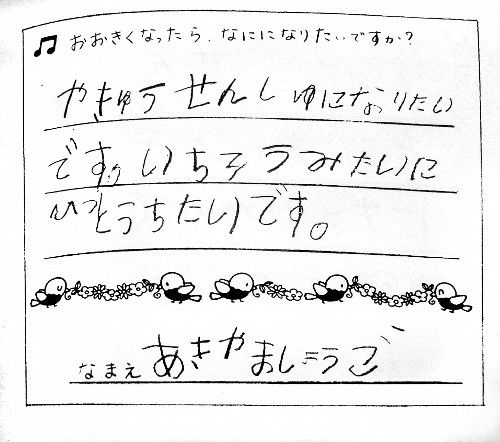 おおきくなったら、なにになりたいですか?
やきゅうせんしゅになりたい
です。いちろうみたいに
ひっとうちたいです。
なまえ あきやましょうご